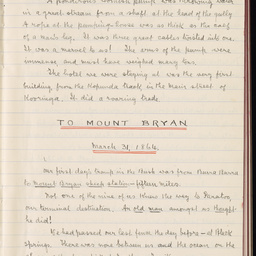 A ponderous Cornish pump was drawing water
in a great stream from a shaft at the head of the gully.
A rope at the pumping-house was as thick as the calf
of a man's leg. It was three great cables twisted into one.
It was a marvel to us! The arms of the pump were
immense, and must have weighed many tons.
The hotel we were staying at was the very first
building from the Kapunda track in the main street of
Kooringa. It did a roaring trade.
TO MOUNT BRYAN
March 31, 1866.
Our first day's tramp in the bush was from Burra Burra
to Mount Bryan sheep station - fifteen miles.
Not one of the nine of us knew the way to Paratoo,
our terminal destination. An old man amongst us thought
he did!
We had passed our last fence the day before - at Black
Springs. There was none between us and the ocean on the